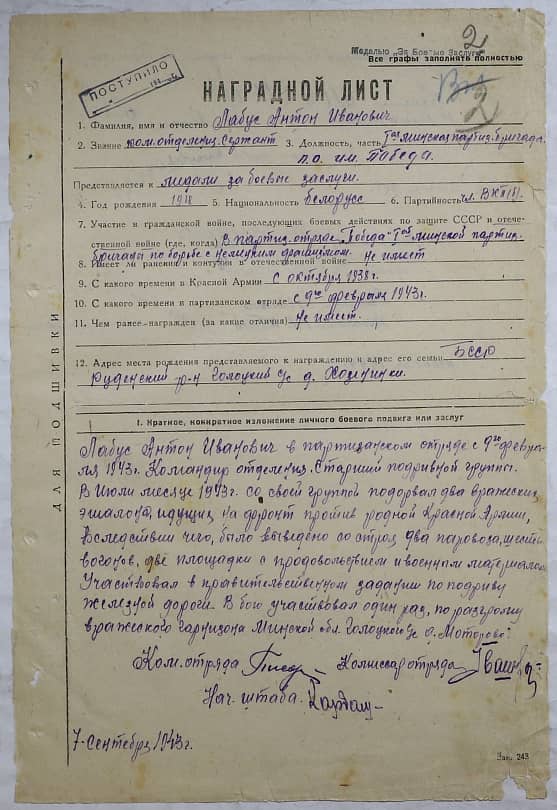 2
Медалью "За Боевые Заслуги"
Все графы заполнять полностью
ПОСТУПИЛО
НАГРАДНОЙ ЛИСТ
2
1. Фамилия, имя и отчество Лабус Антон Иванович
2. Звание ком. отделения. Сержант 3. Должность, часть 1ая Минская партиз. бригада
п.о. им. Победа.
Представляется к медали за боевые заслуги.
4. Год рождения 1918 5. Национальность белорусс 6. Партийность чл. ВКП(б)
7. Участие в гражданской войне, последующих боевых действиях по защите СССР и отече-
ственной войне (где, когда) В партиз. отряде "Победа" 1ой Минской партиз.
бригады по борьбе с немецким фашизмом.
8. Имеет ли ранения и контузии в отечественной войне Не имеет
9. С какого времени в Красной Армии С октября 1938 г.
10. С какого времени в партизанском отряде с 9го февраля 1943 г.
11. Чем ранее награжден (за какие отличия) Не имеет.
12. Адрес места рождения представляемого к награждению и адрес его семьи БССР
Руденский р-н Голоцкий с/с д.
I. Краткое, конкретное изложение личного боевого подвига или заслуг
Лабус Антон Иванович в партизанском отряде с 9го февра-
ля 1943 г. Командир отделения. Старший подривной группы.
В Июли месяце 1943 г. со своей группой подорвал два вражеских
эшалона, идущих на фронт против родной Красной Армии,
Вследствии чего, было выведено со строя два паровоза, шесть
вогонов, две площадки с продовольствием и военным материалом.
Участвовал в правительственном задании по подриву
железной дороги. В бою участвовал один раз, по разгрому
вражеского гарнизона Минской обл. Голоцкого с/с д. Моторово.
Ком. отряда Комиссар отряда
Нач. штаба
7 Сентября 1943 г.
Зак. 243
ДЛЯ ПОДШИВКИ